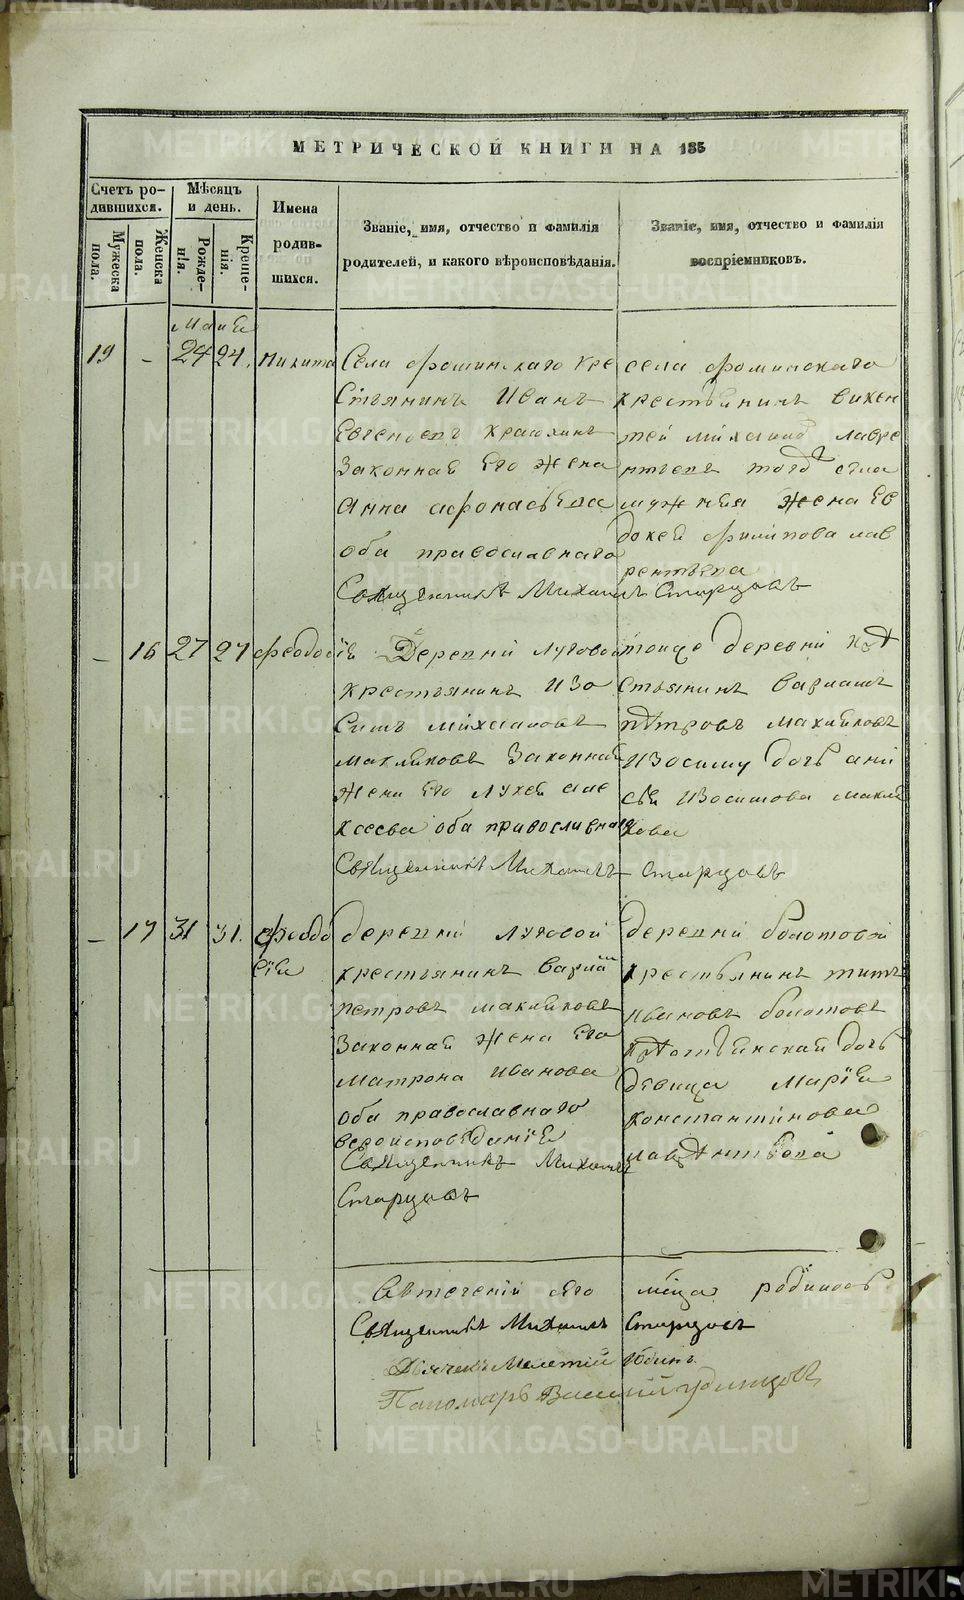 МЕТРИЧЕСКОЙ КНИГИ НА 185
Счетъ ро-
дившихся.
Мужеска
пола.
Женска
пола.
Мѣсяцъ
и день.
Рожде-
нія.
Креще-
нія.
Имена
родив-
шихся.
Званіе, имя, отчество и фамилія
родителей, и какого вѣроисповѣданія.
Званіе, имя, отчество и фамилія
воспріемниковъ.
Маія
19 - 24 24. Никита
Села Фоминскаго кре
стьянинъ Иванъ
Евгеньевъ
Законная Его жена
Анна Афонасьева
оба православнаго
села Фоминскаго
крестьянинъ Викен
тей Михаилов Лавре
нтьевъ того села
жена Ев
докея Филипова Лав
рентьева
Священникъ Михаилъ Старцовъ
- 16 27 27 Феодосія
Деревни Луговой
крестьянинъ Изо
симъ Михаиловъ
Маклаковъ Законная
жена Его Лукея Але
ксеева оба православнаго
тоще деревни кре
стьянинъ Варламъ
Петровъ Маклаковъ
Изосиму дочь Ани
сья Изосимова Макла
кова
Священникъ Михаилъ Старцовъ
- 17 31 31. Феодо
сія
деревни Луговой
крестьянинъ Варлам
Петровъ Маклаковъ
Законная жена Его
Матрона Иванова
оба православнаго
вероисповеданія
Священникъ Михаилъ
Старцовъ
деревни Болотовой
крестьянинъ Титъ
Ивановъ Болотовъ
дочь
девица Марія
Константинова
Лаврентьева
Священникъ Михаилъ Старцовъ
Дьячекъ Мелетій Юдинъ
Пономарь Василій Удинцовъ
METRIKI.GASO-URAL.RU